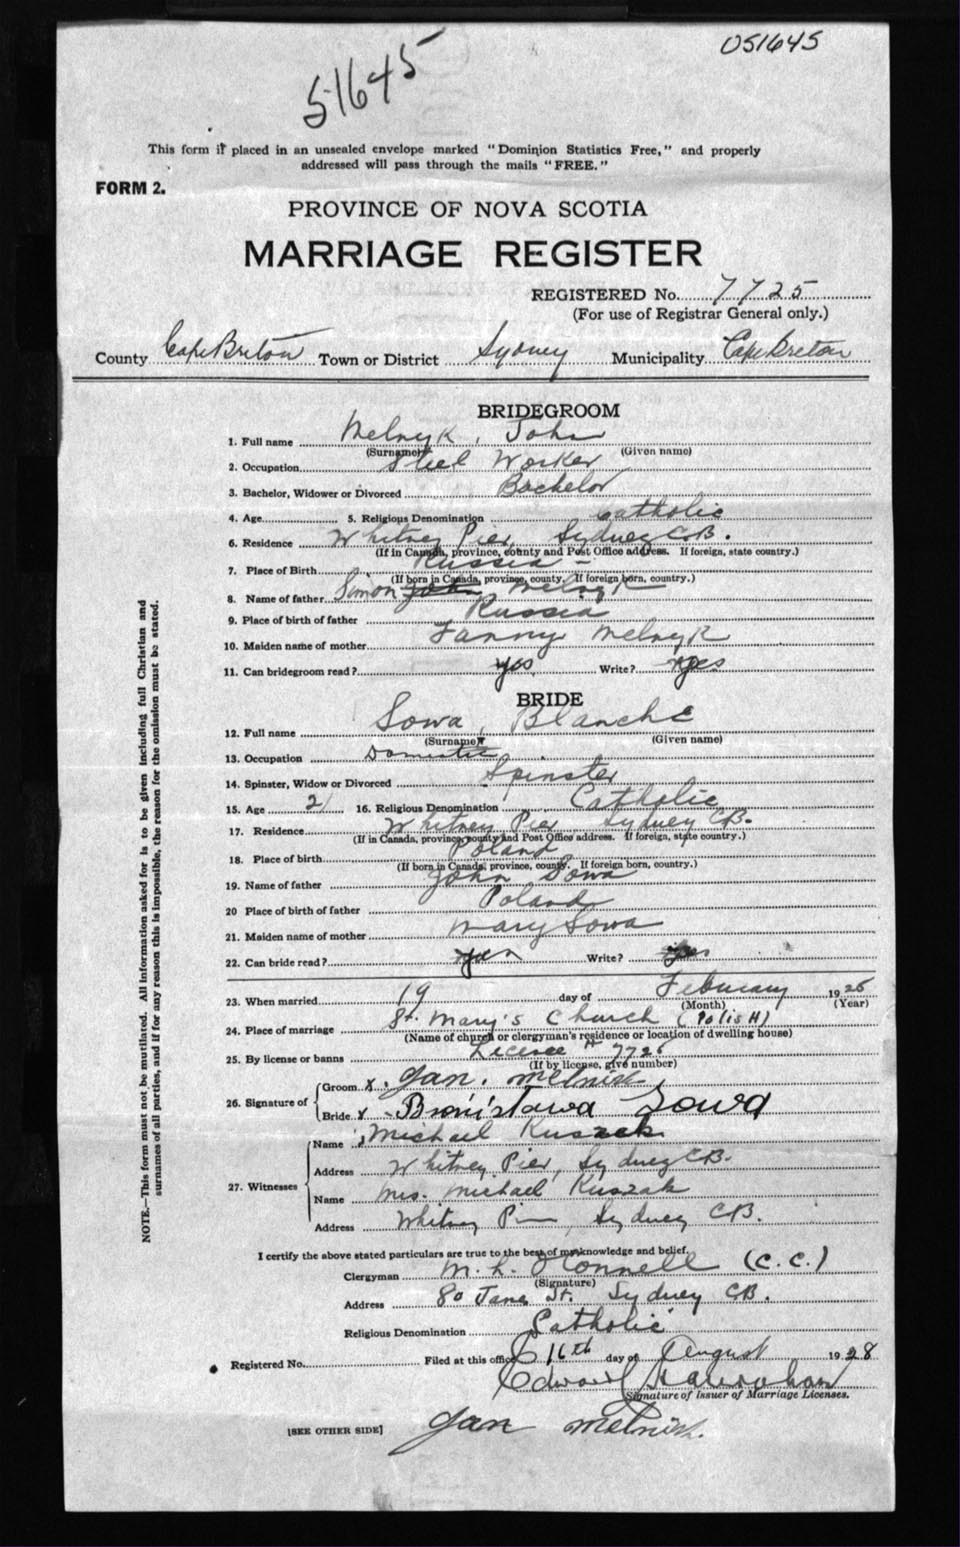 051645
51645
This form if placed in an unsealed envelope marked "Dominion Statistics Free," and properly
addressed will pass through the mails "FREE."
FORM 2.
PROVINCE OF NOVA SCOTIA
MARRIAGE REGISTER
REGISTERED No. 7725
(For use of Registrar General only.)
County Cape Breton Town or District Sydney Municipality Cape Breton
BRIDEGROOM
1. Full name Melnyk, John
(Surname) (Given name)
2. Occupation Steel Worker
3. Bachelor, Widower or Divorced Bachelor
4. Age 5. Religious Denomination Catholic
6. Residence Whitney Pier, Sydney C.B.
(If in Canada, province, county and Post Office address. If foreign, state country.)
7. Place of Birth Russia -
(If born in Canada, province, county. If foreign born, country.)
8. Name of father Simon John Melnyk
9. Place of birth of father Russia
10. Maiden name of mother Fanny Melnyk
11. Can bridegroom read? yes Write? yes
BRIDE
12. Full name Sowa, Blanche
(Surname) (Given name)
13. Occupation Domestic
14. Spinster, Widow or Divorced Spinster
15. Age 21 16. Religious Denomination Catholic
17. Residence Whitney Pier Sydney C.B.
(If in Canada, province, county and Post Office address. If foreign, state country.)
18. Place of birth Poland
(If born in Canada, province, county. If foreign born, country.)
19. Name of father John Sowa
20 Place of birth of father Poland
21. Maiden name of mother Mary Sowa
22. Can bride read? Write? yes
23. When married 19 day of February 19
(Month) (Year)
24. Place of marriage St. Mary's Church (Polish)
(Name of church or clergyman's residence or location of dwelling house)
25. By license or banns License 7725
(If by license, give number)
26. Signature of
Groom x. Jan. Melnick
Bride x Bronistawa Sowa
27. Witnesses
Name Michael Kuszak
Address Whitney Pier, Sydney C.B.
Name Mrs. Michael Kuszak
Address Whitney Pier, Sydney C.B.
I certify the above stated particulars are true to the best of my knowledge and belief.
Clergyman M. L. O'Connell (C.C.)
(Signature)
Address 80 Sydney C.B.
Religious Denomination Catholic
Registered No. Filed at this office 16th day of August 1928
Edward
Signature of Issuer of Marriage Licenses.
[SEE OTHER SIDE] Jan Melnick.
NOTE.—This form must not be mutilated. All information asked for is to be given including full Christian and
surnames of all parties, and if for any reason this is impossible, the reason for the omission must be stated.